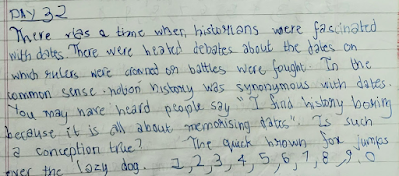 DAY 32
There was a time when historians were fascinated
with dates. There were heated debates about the dates on
which rulers were crowned on battles were fought. In the
common sense notion history was synonymous with dates.
You may have heard people say " I find history boring
because it is all about memorising dates". Is such
a conception true? The quick brown fox jumps
over the lazy dog. 1,2,3,4,5,6,7,8,9.0